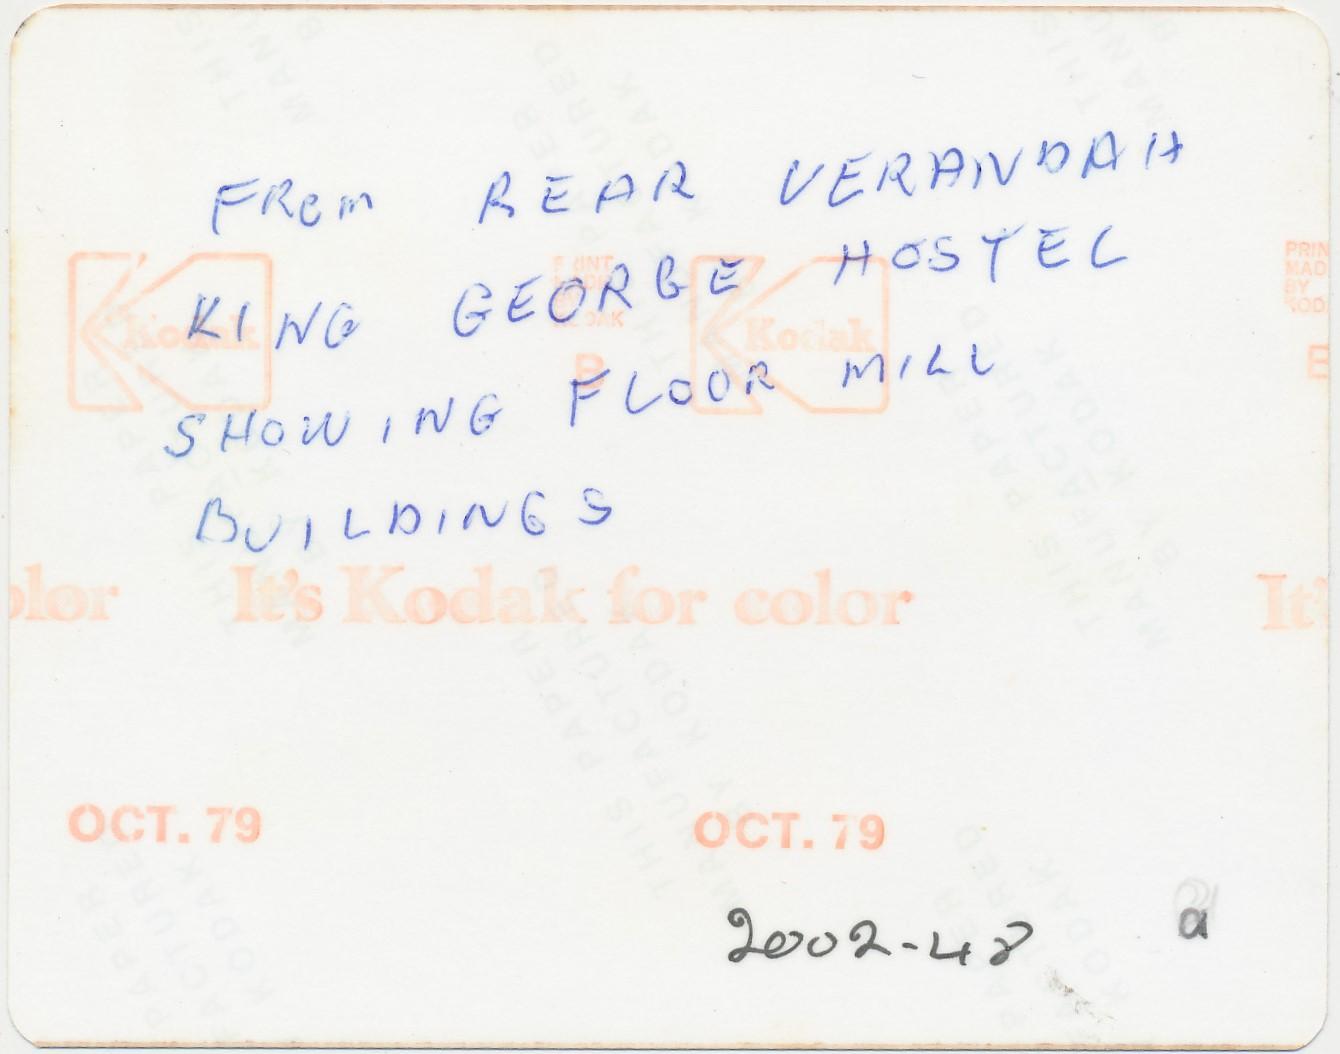 FRom REAR VERANDAH
KING GEORGE HOSTEL
SHOWING FLOOR MILL
BUILDINGS
Kodak
PRINT MADE BY KODAK
B
Kodak
PRIN
MAD
BY
KOD
olor It's Kodak for color It's
OCT. 79 OCT. 79
2002-48 a
THIS PAPER
MANUFACTURED
BY KODAK